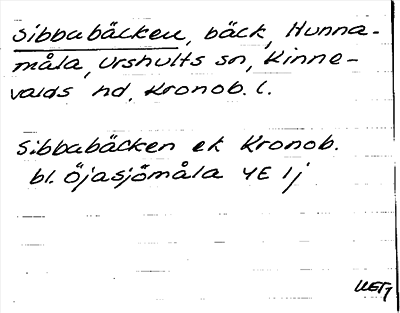 Sibbabäcken, bäck, Hunna-
måla, Urshults sn, Kinne-
valds hd, Kronob. l.
Sibbabäcken ek Kronob.
bl. Öjasjömåla 4E 1j